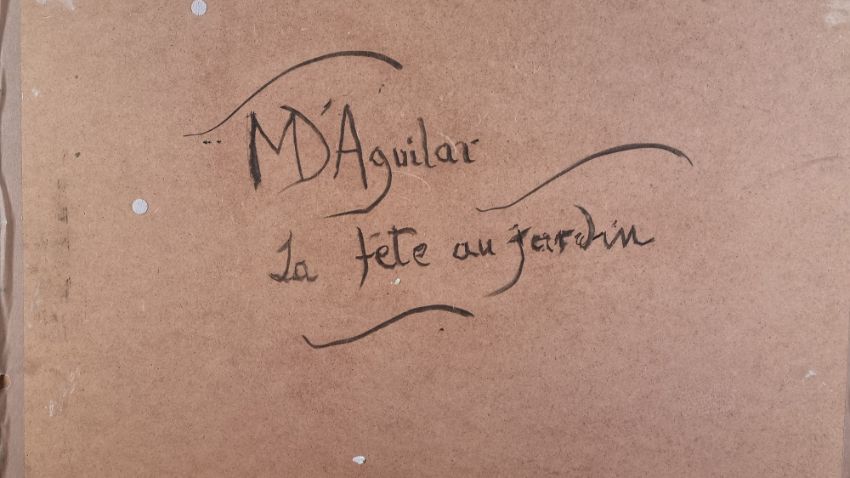 MD'Aguilar
La fête au jardin